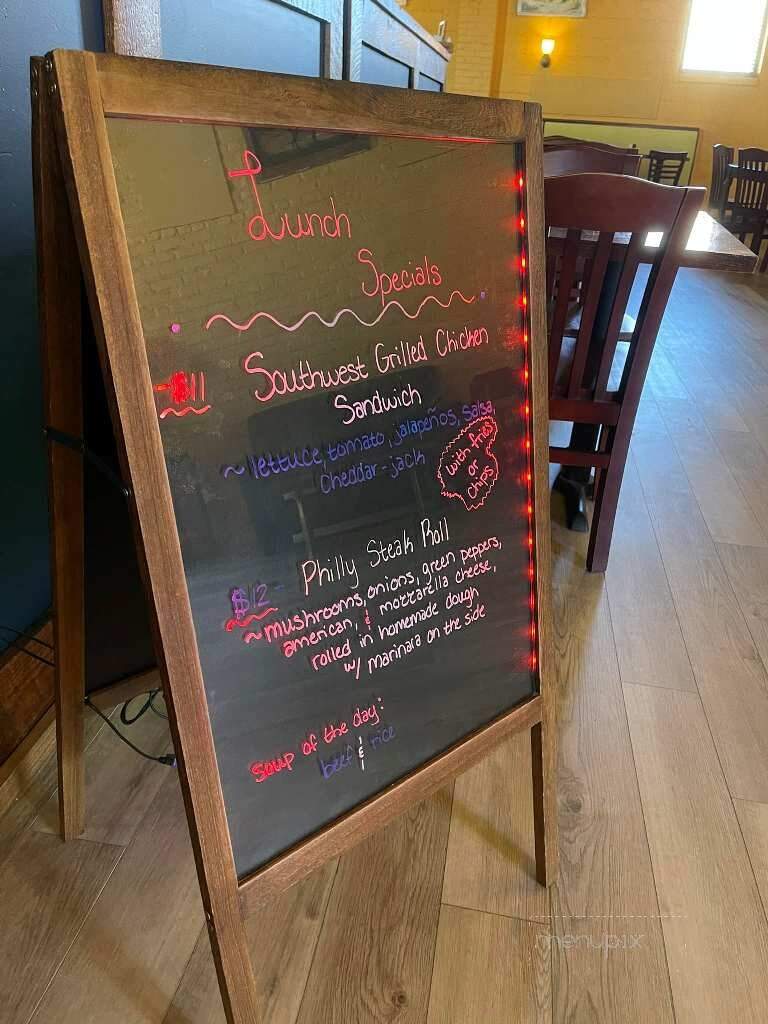 Lunch
Specials
Southwest Grilled Chicken
Sandwich
~ lettuce, tomato, jalapeños, salsa,
Cheddar-jack
with fries
or
chips
Philly Steak Roll
$12
~ mushrooms, onions, green peppers,
american, & mozzarella cheese,
rolled in homemade dough
w/ marinara on the side
soup of the day:
beef & rice
menupix